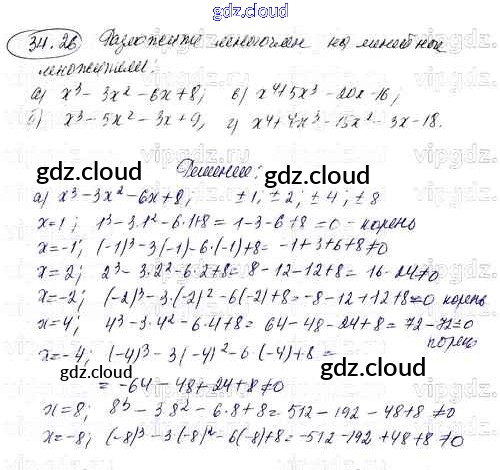 gdz.cloud
34.26 Разложить многочлен на линейные
множители:
а) x³ - 3x² - 6x + 8; в) x⁴ + 5x³ - 20x - 16;
б) x³ - 5x² - 3x + 9, г) x⁴ + 4x³ - 15x² - 3x - 18.
Решение:
gdz.cloud gdz.cloud
а) x³ - 3x² - 6x + 8, ±1; ±2; ±4; ±8
x=1; 1³ - 3·1² - 6·1 + 8 = 1 - 3 - 6 + 8 = 0 - корень
x=-1; (-1)³ - 3(-1) - 6·(-1) + 8 = -1 + 3 + 6 + 8 ≠ 0
x=2; 2³ - 3·2² - 6·2 + 8 = 8 - 12 - 12 + 8 = 16 - 24 ≠ 0
x=-2; (-2)³ - 3·(-2)² - 6(-2) + 8 = -8 - 12 + 12 + 8 = 0 корень
x=4; 4³ - 3·4² - 6·4 + 8 = 64 - 48 - 24 + 8 = 72 - 72 = 0
корень
x=-4; (-4)³ - 3(-4)² - 6·(-4) + 8 =
gdz.cloud gdz.cloud
= -64 - 48 + 24 + 8 ≠ 0
x=8; 8³ - 3·8² - 6·8 + 8 = 512 - 192 - 48 + 8 ≠ 0
x=-8; (-8)³ - 3(-8)² - 6(-8) + 8 = -512 - 192 + 48 + 8 ≠ 0
gdz.cloud